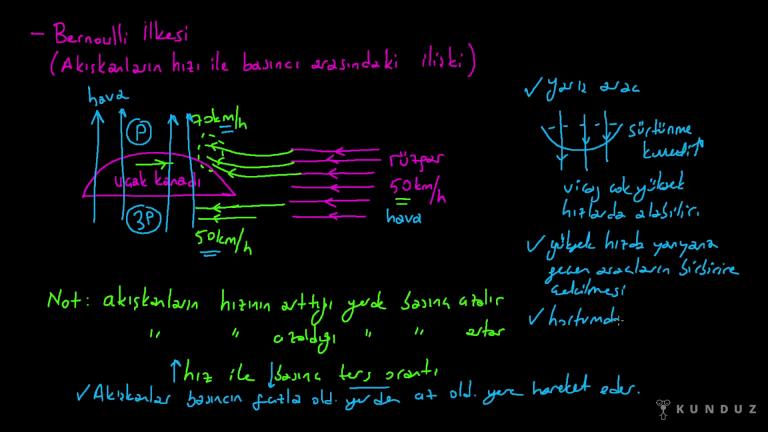 - Bernoulli İlkesi
(Akışkanların hızı ile basıncı arasındaki ilişki)
hava
70km/h
P
uçak kanadı
3P
50km/h
rüzgar
50km/h
hava
✓ yarış araç
sürtünme
kuvveti↑
viraj çok yüksek
hızlarda alabilir.
✓ yüksek hızda yanyana
geçen araçların birbirine
çekilmesi
✓ hortumda
Not: akışkanların hızının arttığı yerde basınç azalır
" " azaldığı " " artar
↑hız ile ↓basınç ters orantı
✓Akışkanlar basıncın fazla old. yerden az old. yere hareket eder.
KUNDUZ